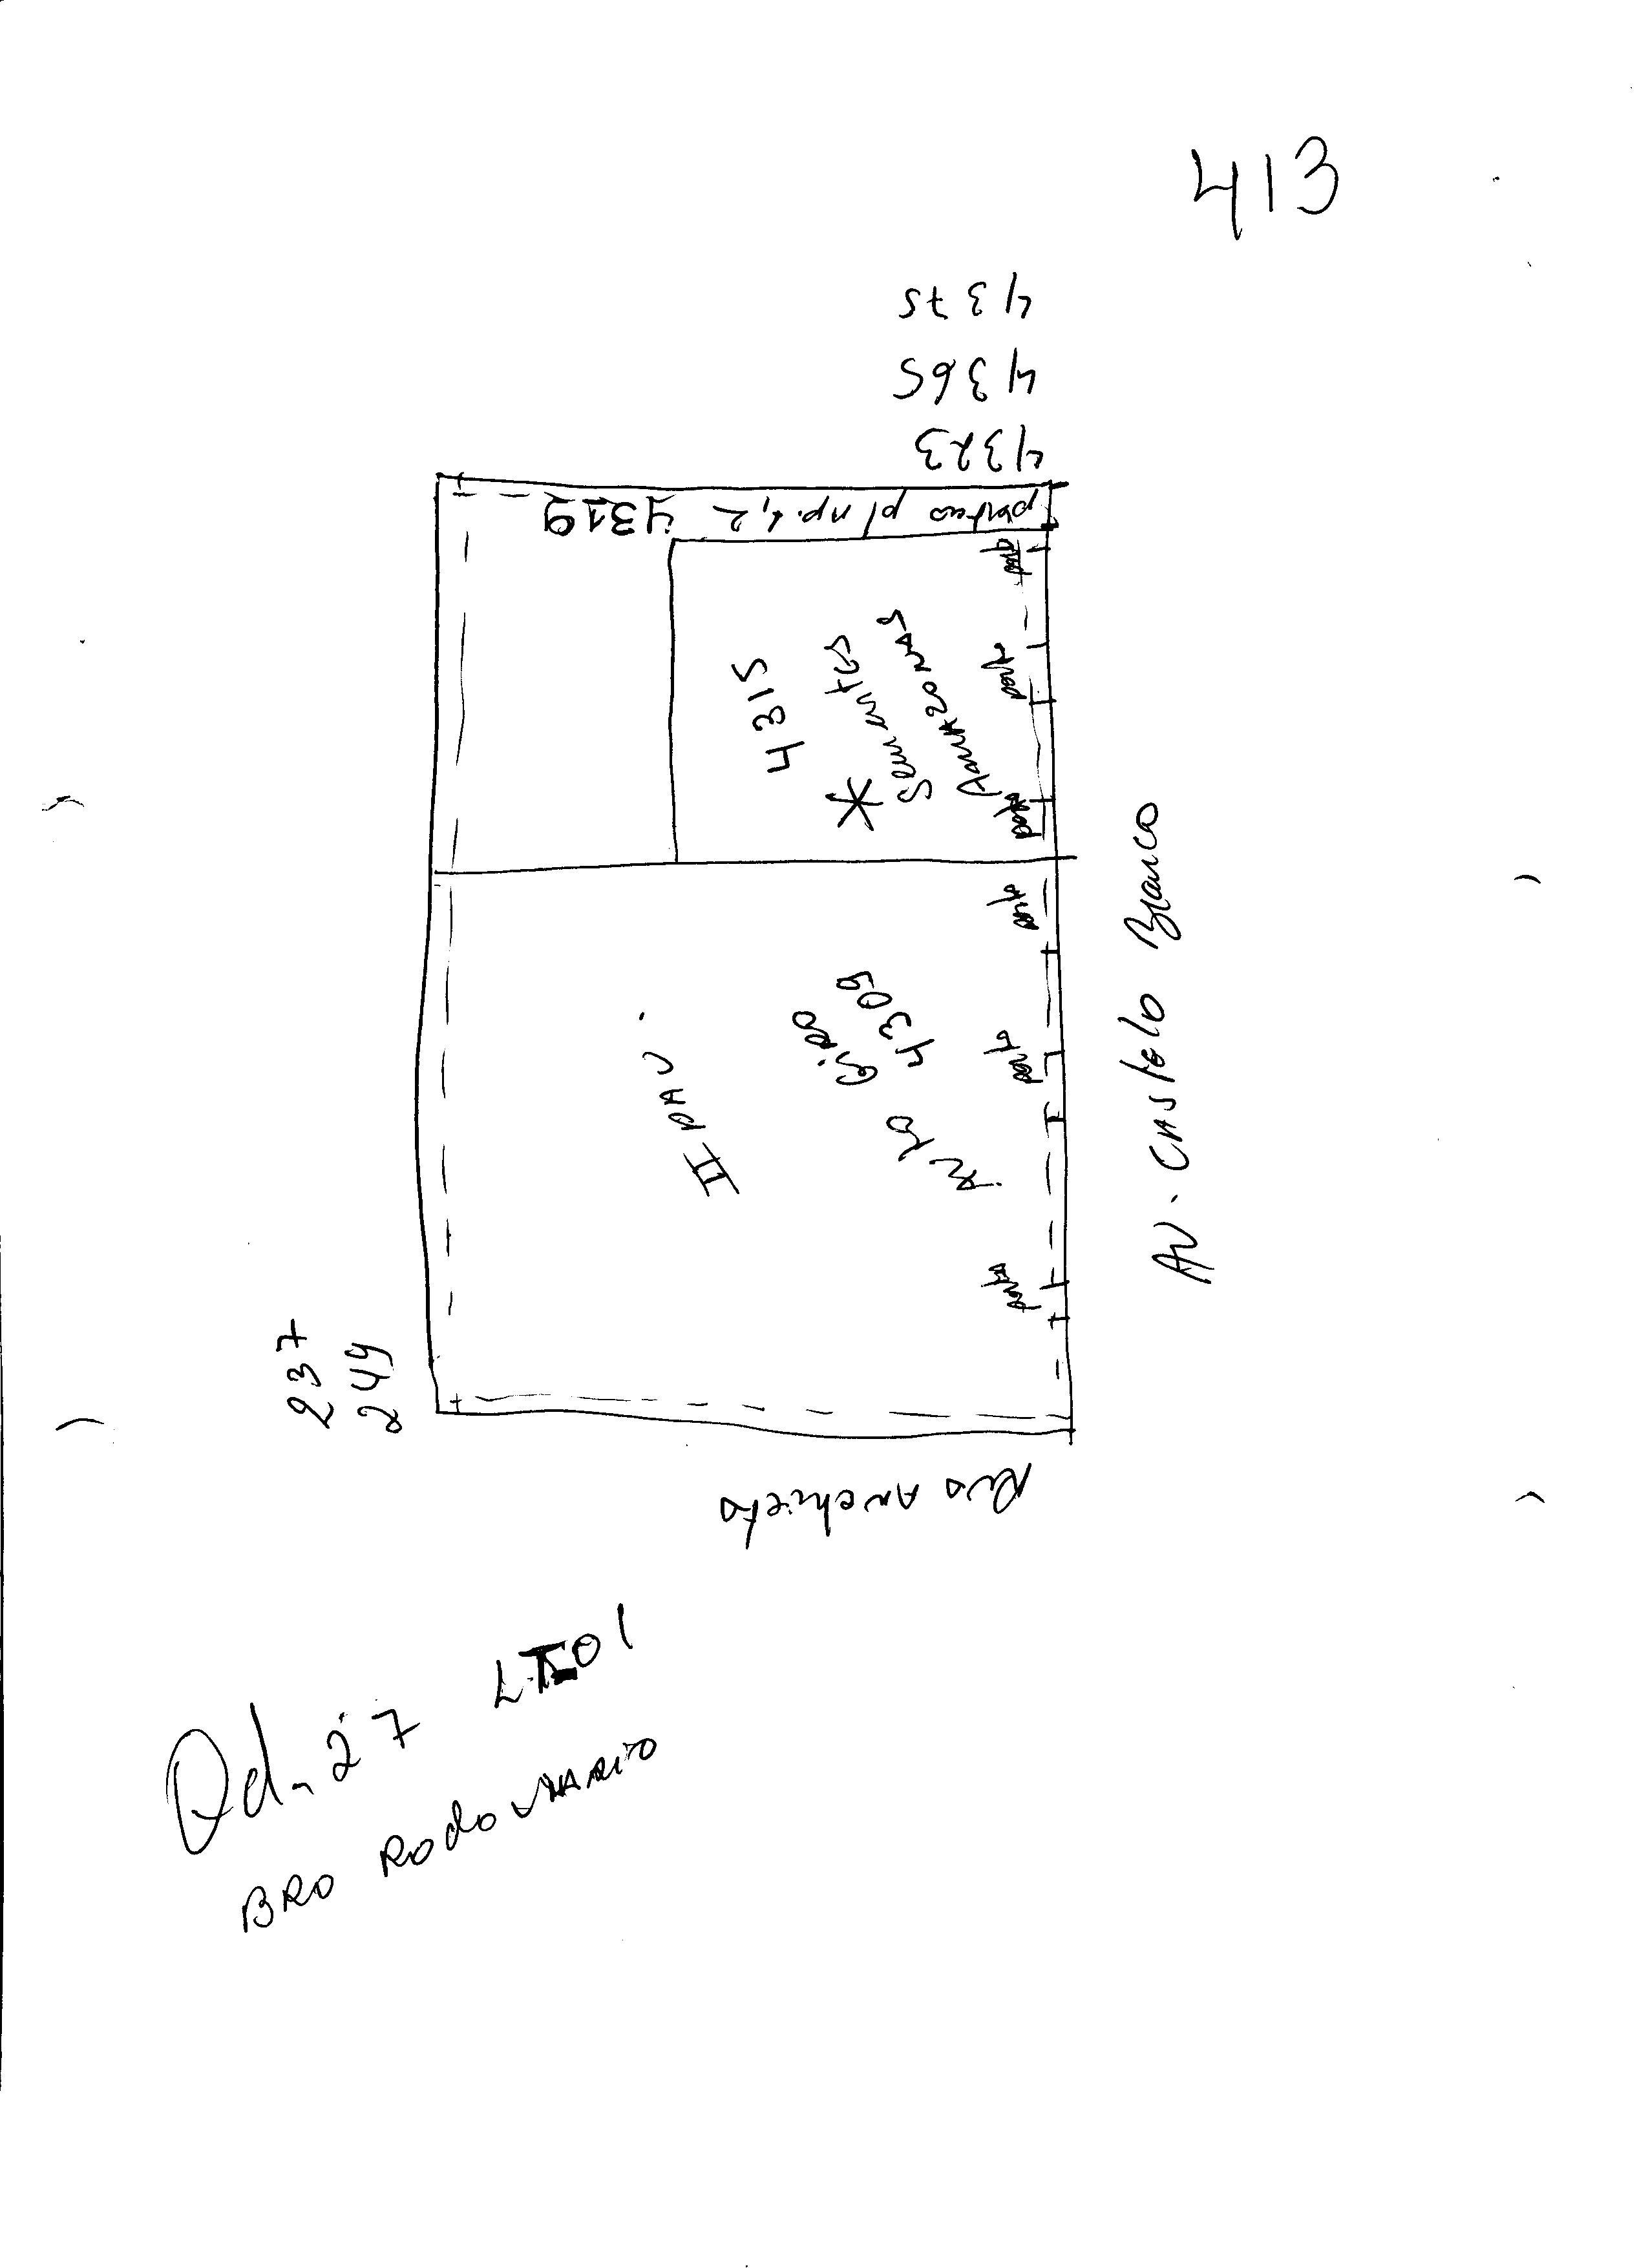 413
4375
4365
4323
portao p/ np. 1,2 4319
4315
* Sementes
Amazonas
porta
porta
porta
porta
porta
porta
II PAV.
Giro
4309
AV. CASTELO Branco
237
249
Rua Anchieta
Qd. 27 LT 01
BRO RodoviARIO